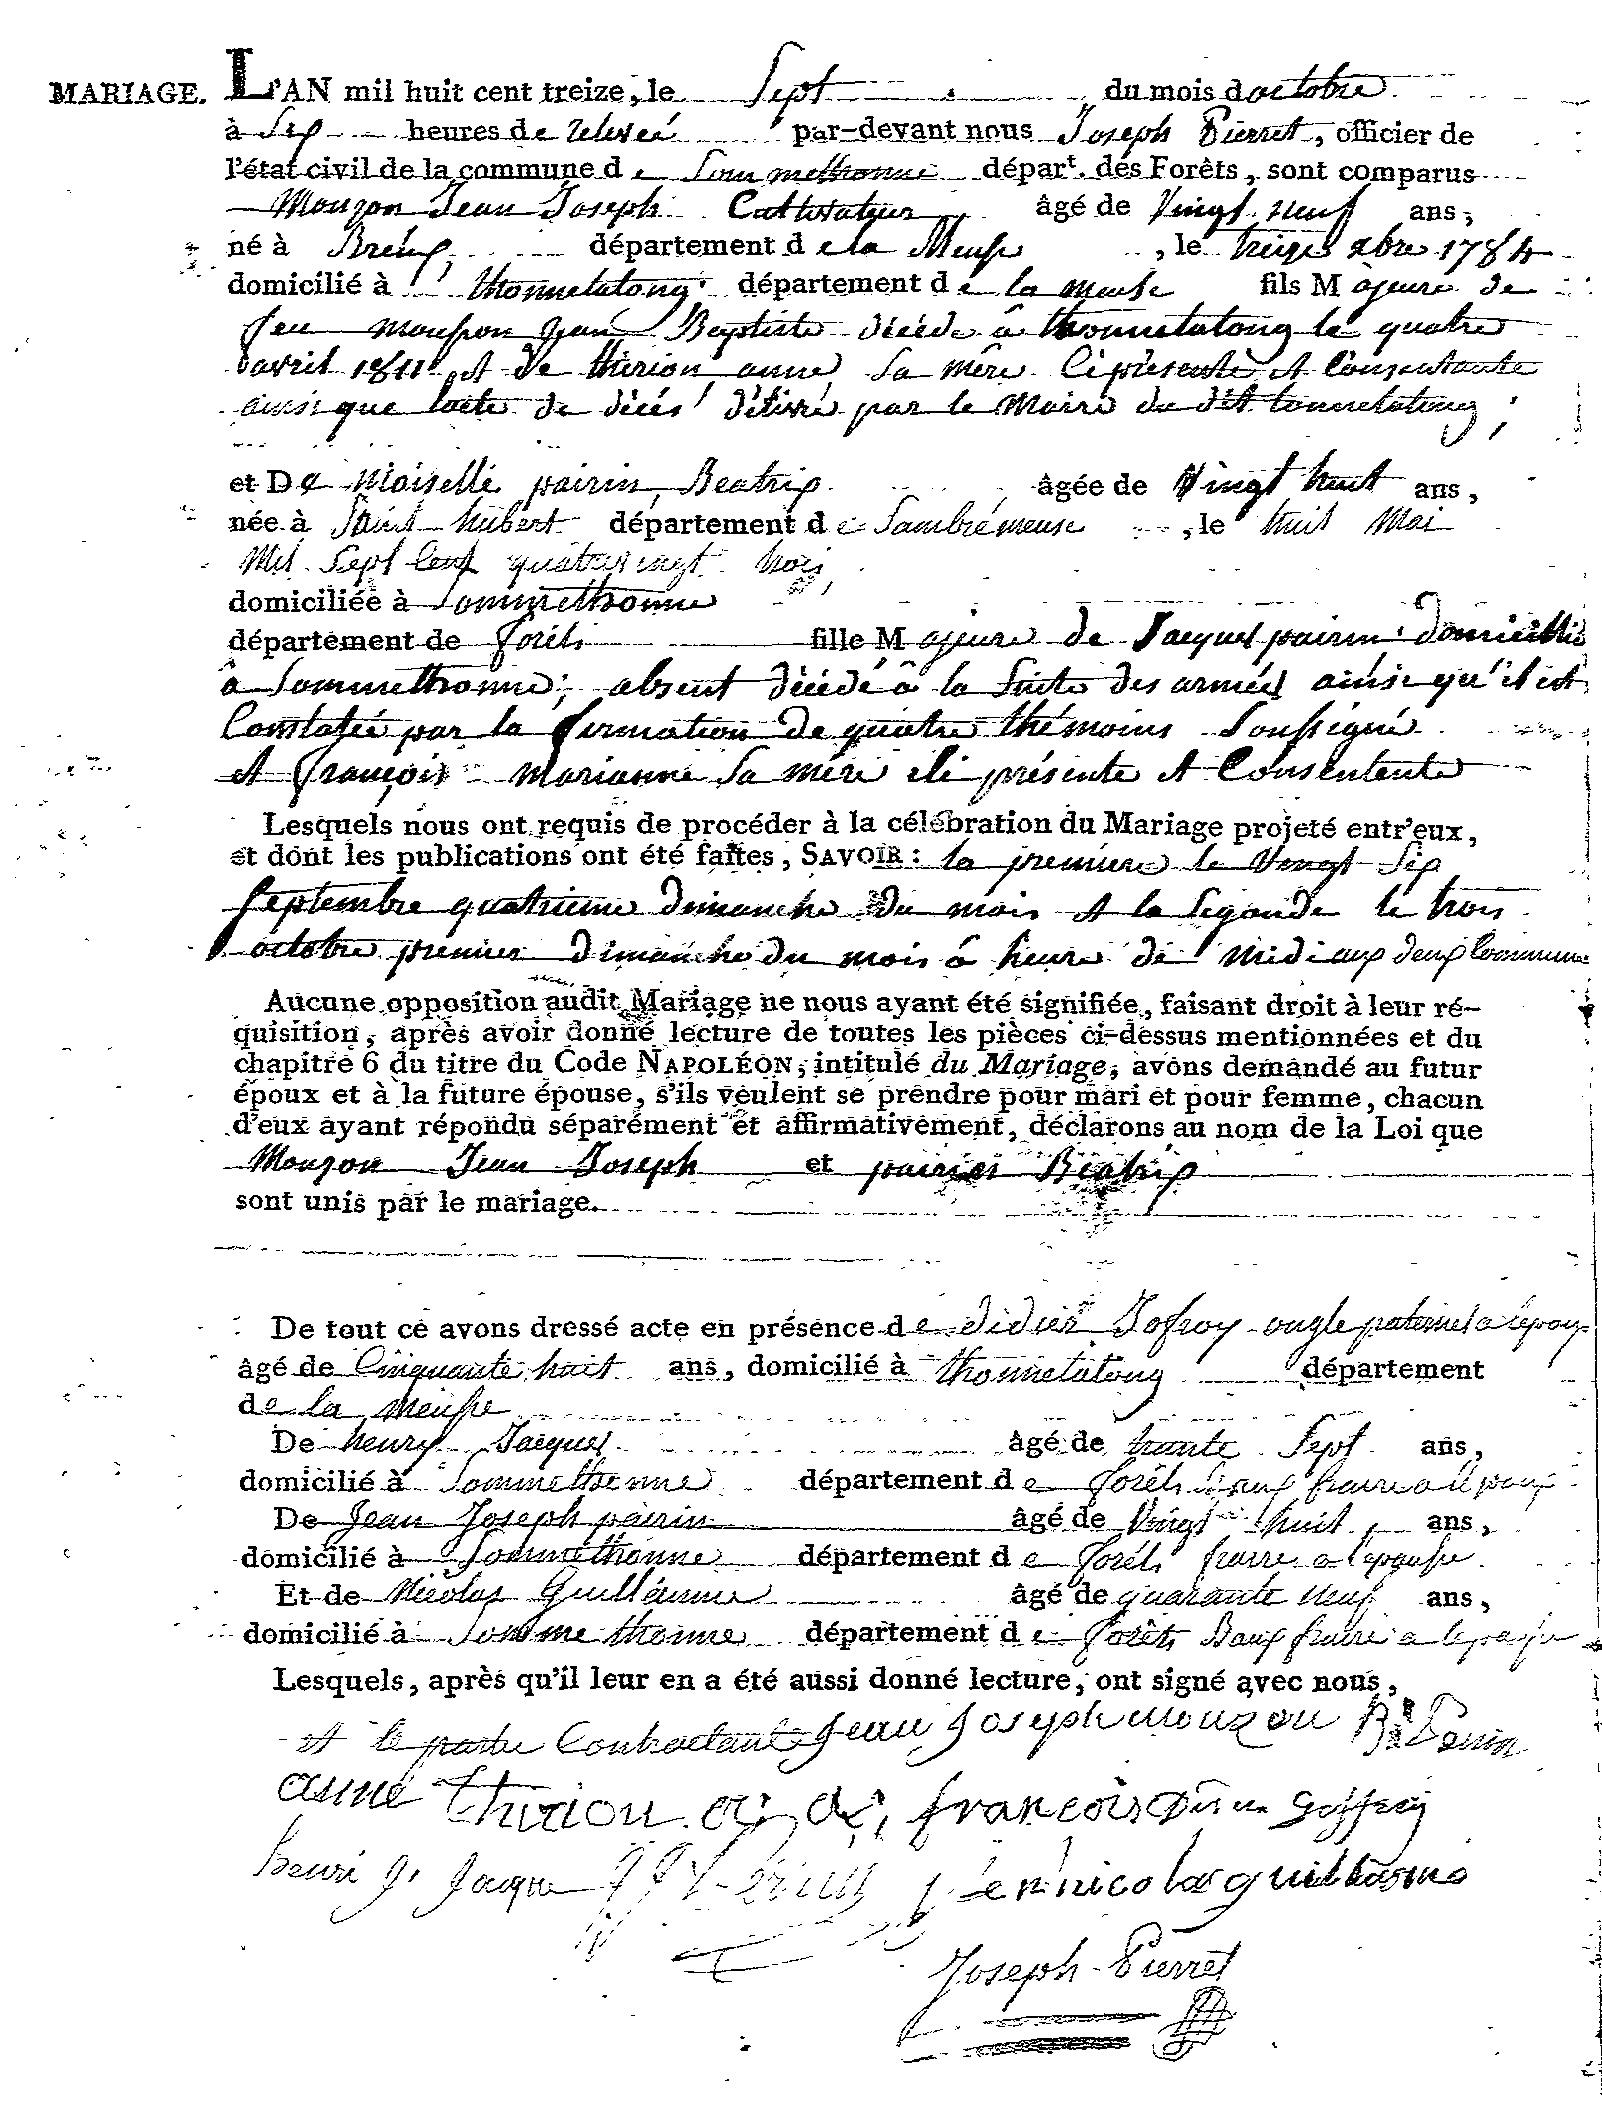 MARIAGE. L'AN mil huit cent treize, le Sept du mois doctobre
à Six heures de relevée par-devant nous Joseph Pierret, officier de
l'état civil de la commune de Sommethonne départ. des Forêts, sont comparus
Mouzon Jean Joseph Cultivateur âgé de Vingt neuf ans,
né à Breux, département de la Meuse, le treize xbre 1784
domicilié à thonnelalong département de la meuse fils Majeure de
feu mouson Jean Baptiste décédé â thonnelalong le quatre
avril 1811 et de thirion anne sa mêre Ci présente et Consentante
ainsi que lacte de décés délivré par le Maire du dit tonnelalong;
et De Moiselle pairin Beatrix âgée de Vingt huit ans,
née à Saint hubert département de Sambremeuse, le huit Mai
Mil Sept Cent quatrevingt trois,
domiciliée à Sommethonne
département de forêts fille Majeure de Jacques pairin domicillié
â Sommethonne, absent décédé â la Suite des armées ainsi qu'il est
Constatée par la firmation de quatre thémoins Soussigné
et françois Marianne Sa mére ici présente et Consentente
Lesquels nous ont requis de procéder à la célébration du Mariage projeté entr'eux,
et dont les publications ont été faites, SAVOIR: la premiere le Vingt Six
Septembre quatrieme dimanche du mois et la Segonde le trois
octobre premier dimanche du mois â heure de midi aux deux Commune
Aucune opposition audit Mariage ne nous ayant été signifiée, faisant droit à leur ré-
quisition, après avoir donné lecture de toutes les pièces ci-dessus mentionnées et du
chapitre 6 du titre du Code NAPOLÉON, intitulé du Mariage, avons demandé au futur
époux et à la future épouse, s'ils veulent se prendre pour mari et pour femme, chacun
d'eux ayant répondu séparément et affirmativement, déclarons au nom de la Loi que
Mouzon Jean Joseph et pairin Béatrix
sont unis par le mariage.
De tout ce avons dressé acte en présence de didier Jofroy ongle paternel a lepoux
âgé de Cinquante huit ans, domicilié à thonnelalong département
de la meuse
De henry Jacques âgé de trante Sept ans,
domicilié à Sommethonne département de forêts Baux fraire a lepoux
De Jean Joseph pairin âgé de Vingt huit ans,
domicilié à Sommethonne département de forêts fraire a lepouse
Et de Nicolas Guilleaume âgé de quarante neuf ans,
domicilié à Somme thonne département de forêts Baux fraire a lepouse
Lesquels, après qu'il leur en a été aussi donné lecture, ont signé avec nous,
et le partie Contractante Jean Joseph mouzon Bx Perin
anne thirion françois
henri J. Jacque nicolas guillaume
Joseph Pierret